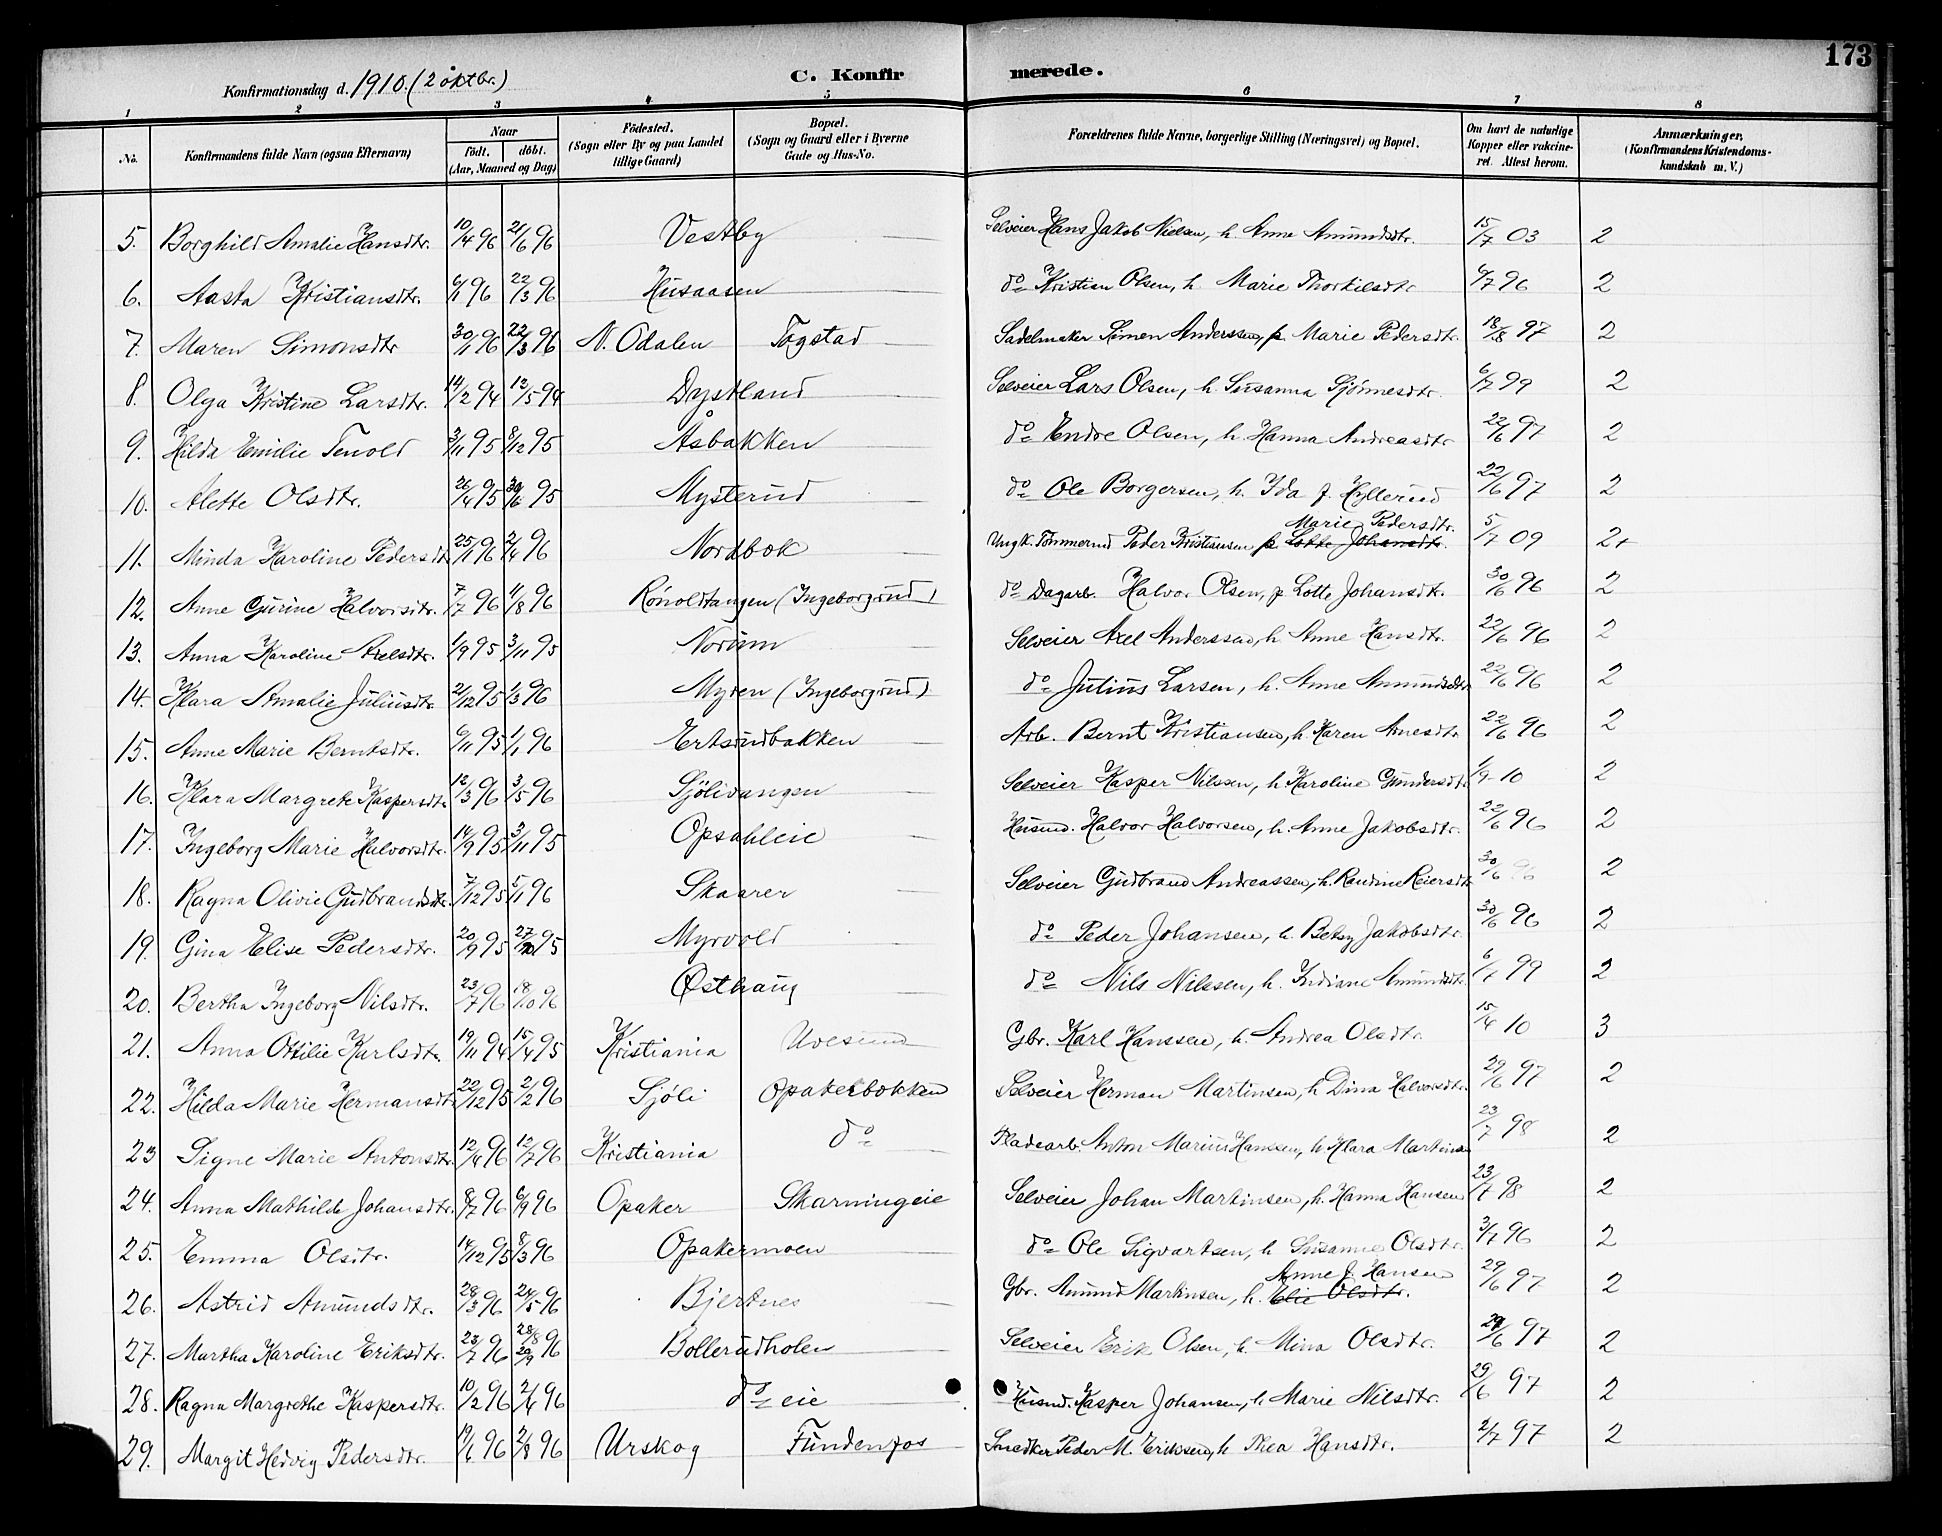 173
Konfirmationsdag d. 1910. (2 oktbr.)
C. Konfirmerede.
1 2 3 4 5 6 7 8
No. Konfirmandens fulde Navn (ogsaa Efternavn) Naar født. døbt. (Aar, Maaned og Dag) Fødested. (Sogn eller By og paa Landet tillige Gaard) Bopæl. (Sogn og Gaard eller i Byerne Gade og Hus-No. Forældrenes fulde Navne, borgerlige Stilling (Næringsvei) og Bopæl. Om havt de naturlige Kopper eller vakcineret. Attest herom. Anmærkninger. (Konfirmandens Kristendomskundskab m. V.)
5. Borghild Amalie Hansdtr. 10/4 96 21/6 96 Vestby Selveier Hans Jakob Nielsen, h. Anne Amundsdtr. 15/7 03 2
6. Aasta Kristiansdtr. 6/1 96 22/3 96 Husaasen do Kristian Olsen, h. Marie Thorkilsdtr 6/7 96 2
7. Maren Simonsdtr 30/1 96 22/3 96 N. Odalen Togstad Sadelmaker Simen Anderssen, p. Marie Pedersdtr. 18/8 97 2
8. Olga Kristine Larsdtr. 14/2 94 13/5 94 Dystland Selveier Lars Olsen, h. Susanna Sjønnesdtr. 6/7 99 2
9. Hilda Emilie Tenold 3/11 95 8/12 95 Åsbakken do Endre Olsen, h. Hanna Andreasdtr 22/6 97 2
10. Alette Olsdtr. 26/4 95 30/6 95 Mysterud do Ole Borgersen, h. Ida f. Hyllerud 22/6 97 2
11. Minda Karoline Pedersdtr 25/1 96 2/4 96 Nordbøk Ungk. Tømmermd Peder Kristiansen p. Lotte Johansdtr. Marie Pedersdtr. 5/7 09 2+
12. Anne Gurine Halvorsdtr. 7/7 96 11/8 96 Ronoldtangen (Ingeborgrud) do Dagarb. Halvor Olsen, p Lotte Johansdtr. 30/6 96 2
13. Anna Karoline Axelsdtr. 1/9 95 3/11 95 Norum Selveier Axel Anderssen, h. Anne Hansdtr. 22/6 96 2
14. Klara Amalie Juliusdtr. 2/12 95 1/3 96 Myren (Ingeborgrud) do Julius Larsen, h. Anne Amundsdtr 22/6 96 2
15. Anne Marie Berntsdtr. 6/11 95 1/1 96 Ertsundbakken Arb. Bernt Kristiansen, h. Karen Arnesdtr 22/6 96 2
16. Klara Margrete Kaspersdtr. 12/3 96 3/5 96 Sjølivangen Selveier Kasper Nilssen, h. Karoline Gundersdtr 1/9-10 2
17. Ingeborg Marie Halvorsdtr. 14/9 95 3/11 95 Opsahleie Husmd. Halvor Halvorsen, h. Anne Jakobsdtr. 22/6 96 2
18. Ragna Olivie Gudbrandsdtr. 7/12 95 5/1 96 Skaarer Selveier Gudbrand Andreassen, h. Randine Reiersdtr 30/6 96 2
19. Gina Elise Pedersdtr. 20/9 95 27/10 95 Myrvold do Peder Johansen, h. Betsy Jakobsdtr. 30/6 96 2
20. Bertha Ingeborg Nilsdtr. 23/7 96 18/10 96 Østhaug do Nils Nilssen, h. Indiane Amundsdtr. 6/7 99 2
21. Anna Ottilie Karlsdtr. 19/11 94 15/4 95 Kristiania Uvesund Gbr. Karl Hanssen, h. Andrea Olsdtr. 15/4 10 3
22. Hilda Marie Hermansdtr 22/12 95 2/2 96 Sjøli Opakerbakken Selveier Herman Martinsen, h Dina Halvorsdtr. 29/6 97 2
23 Signe Marie Antonsdtr. 12/4 96 12/7 96 Kristiania do Pladearb. Anton Marius Hanssen, h. Klara Martinsen 23/7 98 2
24. Anna Mathilde Johansdtr. 8/7 96 6/9 96 Opaker Skarningeie Selveier Johan Martinsen, h. Hanna Hansen 23/7 98 2
25. Emma Olsdtr. 14/12 95 8/3 96 Opakermoen do Ole Sigvartsen, h Susanne Olsdtr. 3/7 96 2
26. Astrid Amundsdtr. 28/3 96 24/5 96 Bjertnes Gbr. Amund Martinsen, h. Elie Olsdtr. Anne f. Hansen 29/6 97 2
27. Martha Karoline Eriksdtr. 23/7 96 28/8 20/9 96 Bollerudholen Selveier Erik Olsen, h. Mina Olsdtr. 29/6 97 2
28. Ragna Margrethe Kaspersdtr. 10/2 96 2/4 96 do eie Husmd. Kasper Johansen, h Marie Nilsdtr. 29/6 97 2
29. Margit Hedvig Pedersdtr. 19/6 96 2/8 96 Urskog Fundenfos Snedker Peder M. Eriksen, h Thea Hansdtr. 2/7 97 2